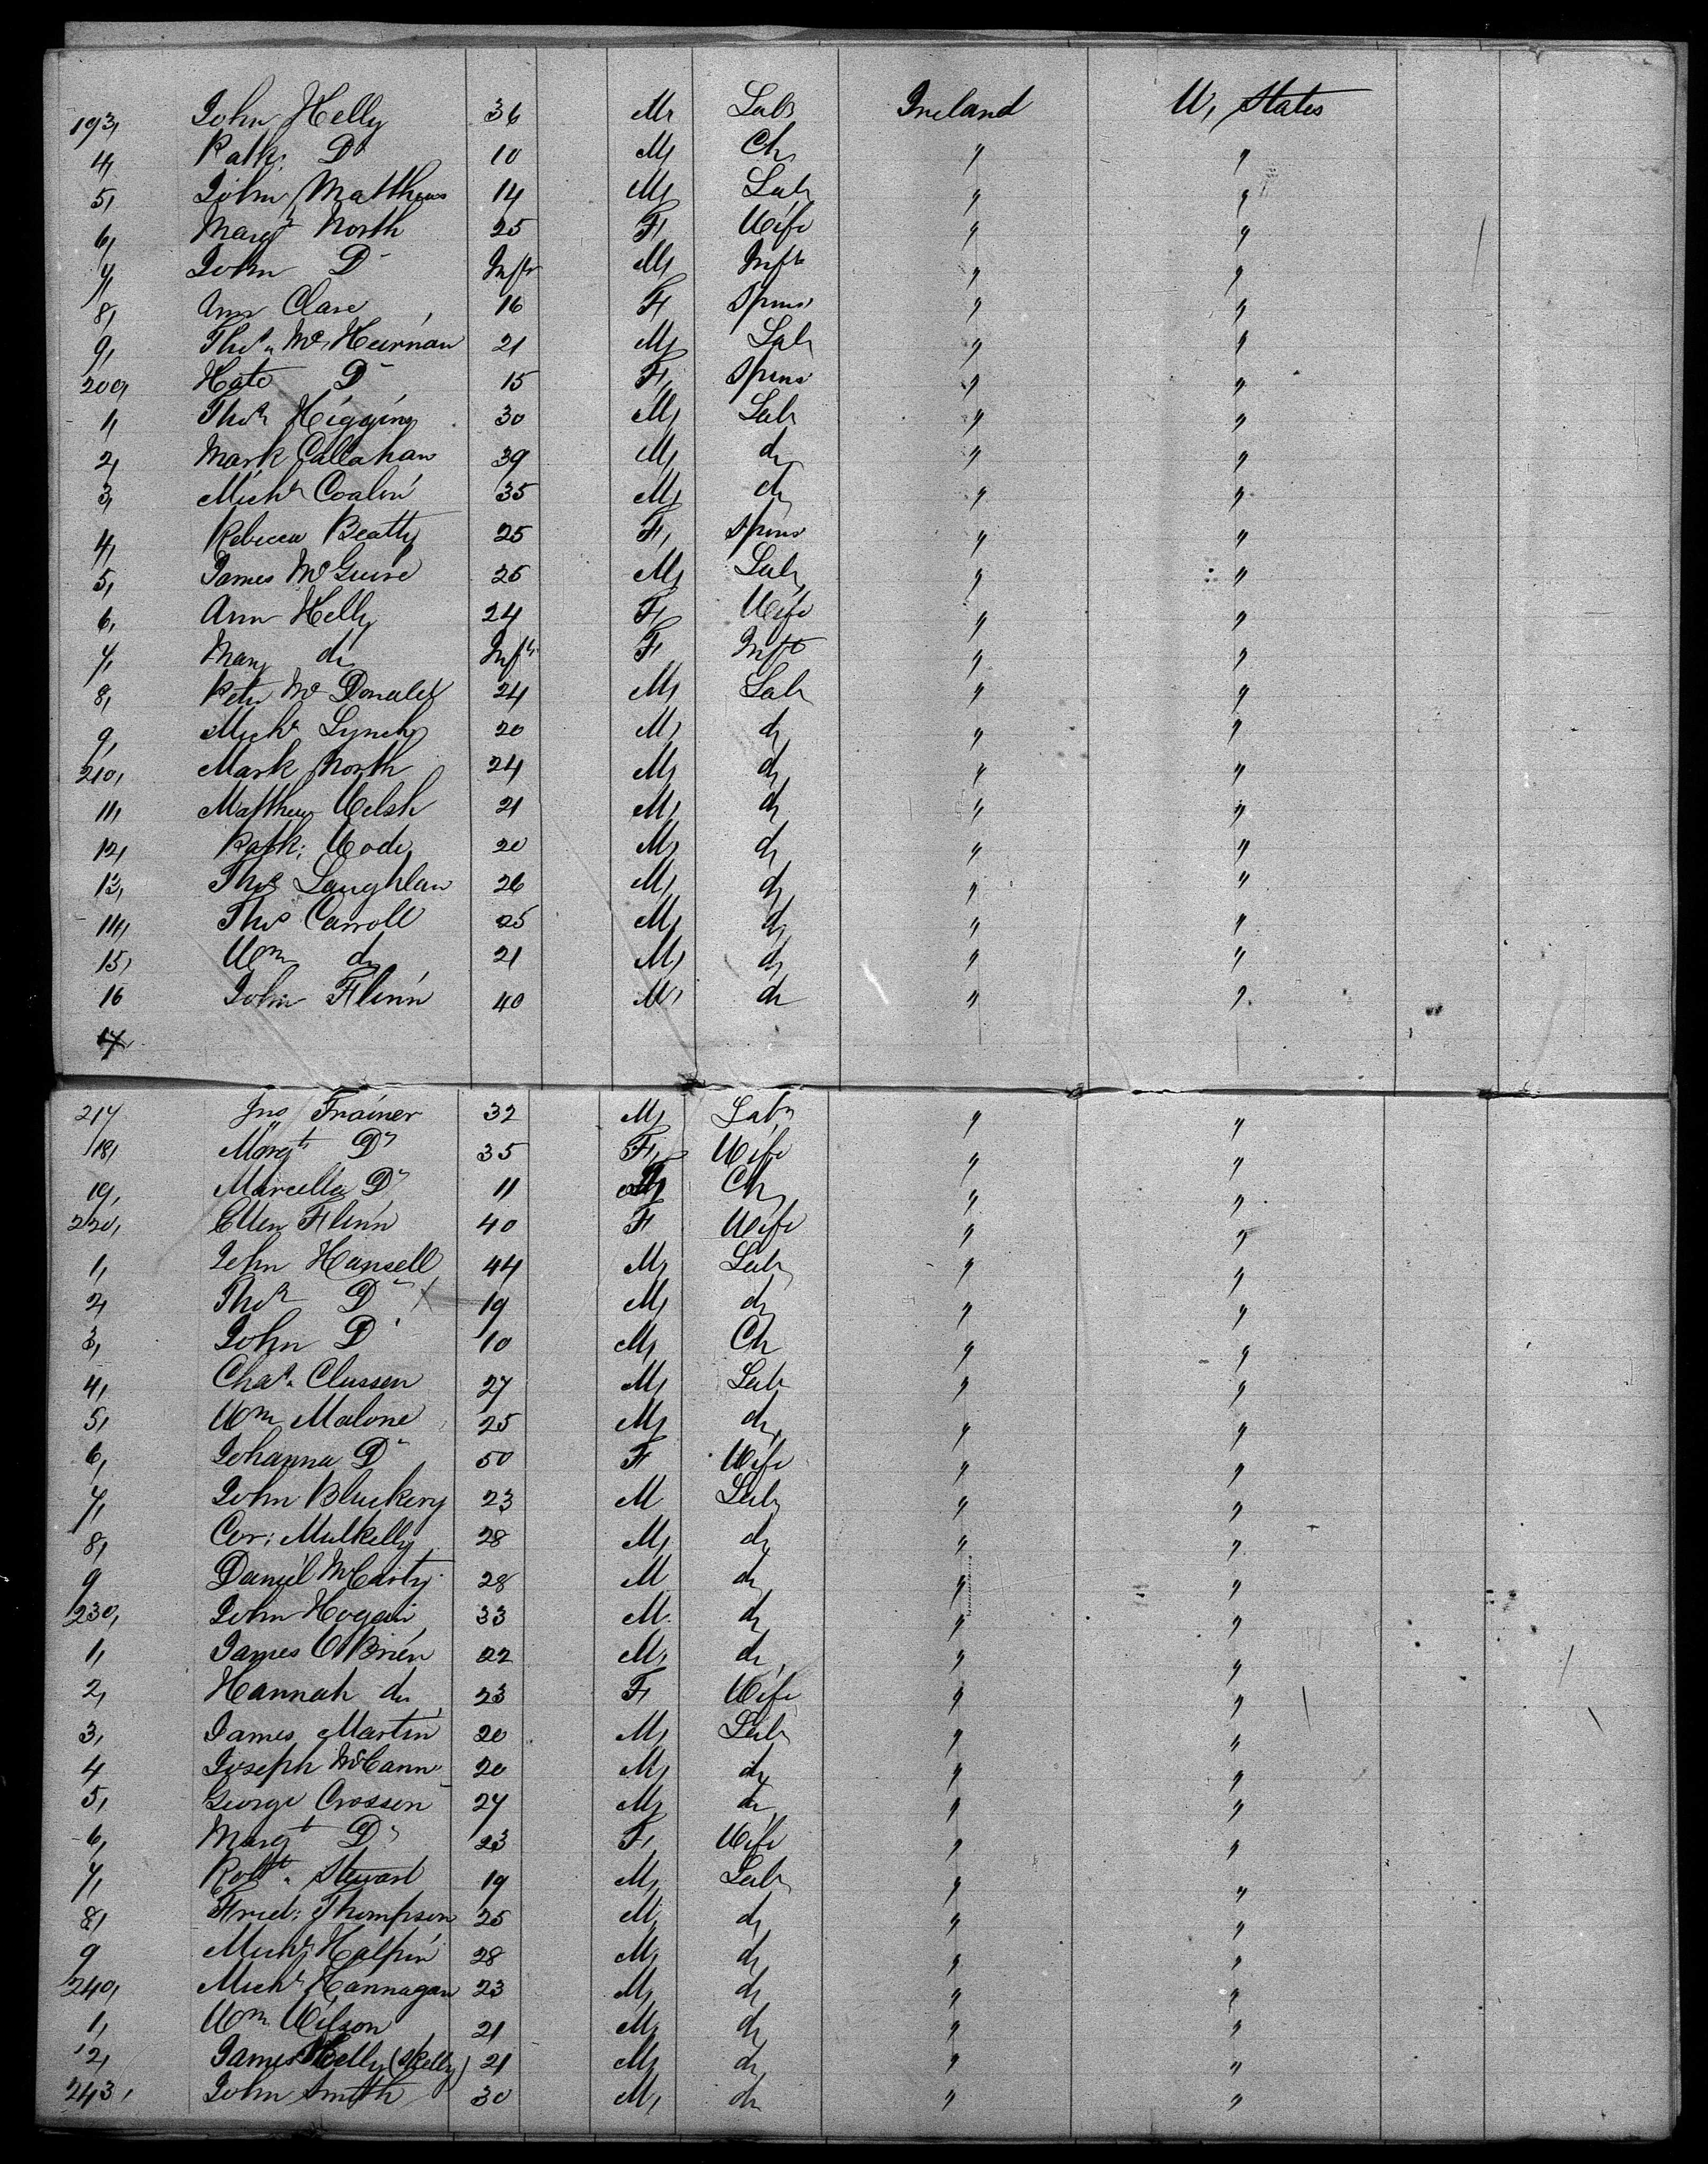 193, John Kelly 36 M, Lab Ireland U, States
4, Patk; Do 10 M, Ch, " "
5, John Matthews 14 M, Lab " "
6, Margt North 25 F, Wife " "
7, John Do Inft M, Inft " "
8, Ann Clare 16 F, Spins " "
9, Thos Mc Keirnan 21 M, Lab " "
200, Kate Do 15 F, Spins " "
1, Thos Higgins 30 M, Lab " "
2, Mark Callahan 39 M, do " "
3, Michl 35 M, do " "
4, Rebecca Beatty 25 F, Spins " "
5, James McGuire 26 M, Lab " "
6, Ann Kelly 24 F, Wife " "
7, Mary do Inft F, Inft " "
8, Peter Mc Donald 24 M, Lab " "
9, Michl Lynch 20 M, do " "
210, Mark North 24 M, do " "
11, Matthew Welsh 21 M, do " "
12, Patk; 20 M, do " "
13, Thos Laughlan 26 M, do " "
14, Thos Carroll 25 M, do " "
15, Wm do 21 M, do " "
16 John Flinn 40 M, do " "
17
217 Jno Trainer 32 M, Lab " "
18, Margt Do 35 F, Wife " "
19, Marcella Do 11 Ch, " "
220, Ellen Flinn 40 F Wife " "
1, John Hansell 44 M, Lab " "
2, Thos Do X 19 M, do " "
3, John Do 10 M, Ch " "
4, Chas Clussen 27 M, Lab " "
5, Wm Malone 25 M, do " "
6, Johanna Do 50 F Wife " "
7, John 23 M Lab " "
8, Cor; Mulkelly 28 M, do " "
9 Daniel McCarty 28 M do " "
230, John Hogan 33 M. do " "
1, James OBrien 22 M, do " "
2, Hannah do 23 F, Wife " "
3, James Martin 20 M, Lab " "
4 Joseph McCann 20 M, do " "
5, George Crossen 27 M, do " "
6, Margt Do 23 F, Wife " "
7, Robt Stewart 19 M, Lab " "
8, Fried; Thompson 25 M, do " "
9 Michl Halpin 28 M, do " "
240, Michl Hannagan 23 M, do " "
1, Wm Wilson 21 M, do " "
2, James Kelly (Skelly) 21 M, do " "
243, John Smith 30 M, do " "